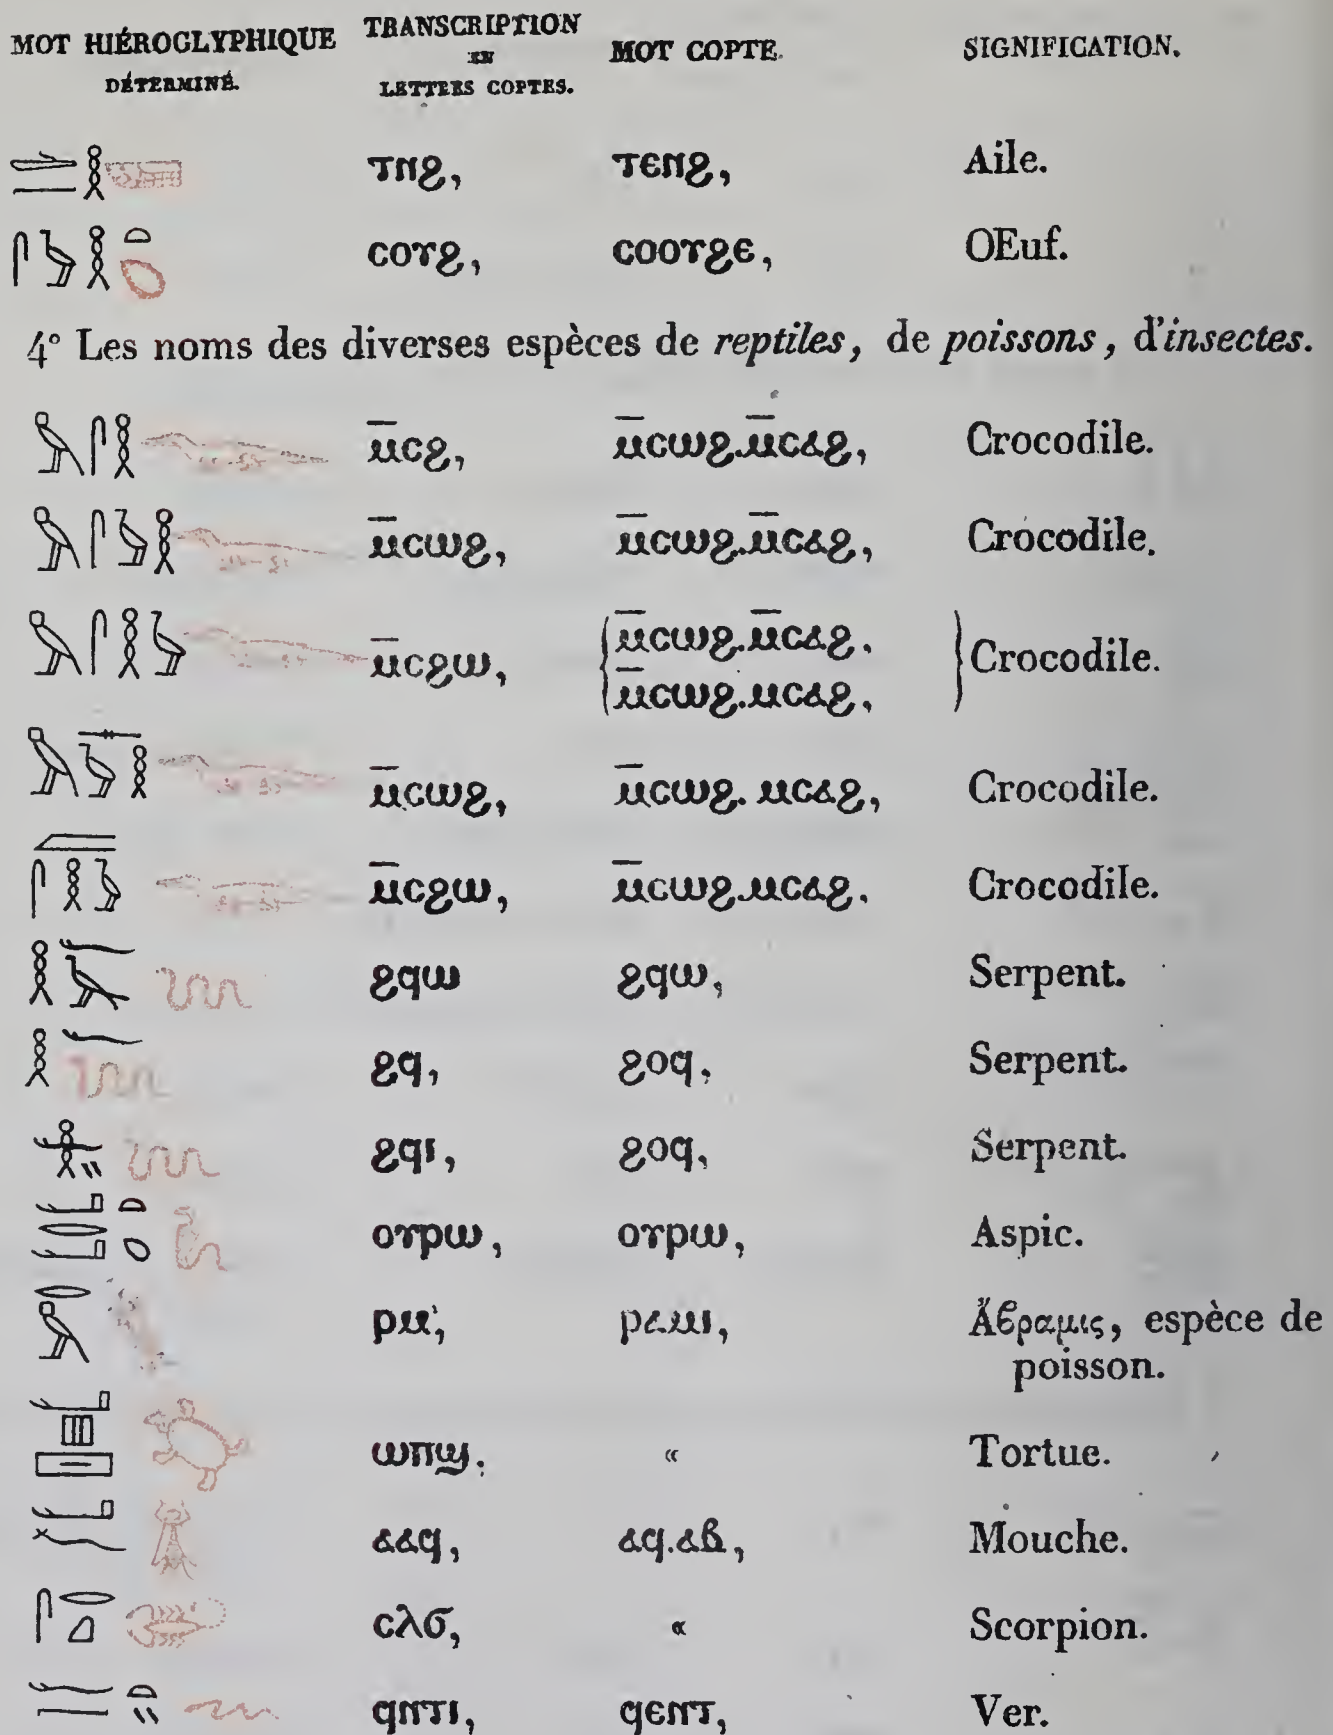 MOT HIÉROGLYPHIQUE DÉTERMINÉ. TRANSCRIPTION EN LETTRES COPTES. MOT COPTE. SIGNIFICATION.
ⲧⲛϩ, ⲧⲉⲛϩ, Aile.
ⲥⲟⲩϩ, ⲥⲟⲟⲩϩⲉ, OEuf.
4° Les noms des diverses espèces de reptiles, de poissons, d'insectes.
ⲙ̅ⲥϩ, ⲙ̅ⲥⲱϩ.ⲙ̅ⲥⲁϩ, Crocodile.
ⲙ̅ⲥⲱϩ, ⲙ̅ⲥⲱϩ.ⲙ̅ⲥⲁϩ, Crocodile.
ⲙ̅ⲥϩⲱ, ⲙ̅ⲥⲱϩ.ⲙ̅ⲥⲁϩ, Crocodile.
ⲙ̅ⲥⲱϩ.ⲙⲥⲁϩ,
ⲙ̅ⲥⲱϩ, ⲙ̅ⲥⲱϩ. ⲙⲥⲁϩ, Crocodile.
ⲙ̅ⲥϩⲱ, ⲙ̅ⲥⲱϩ.ⲙⲥⲁϩ. Crocodile.
ϩϥⲱ ϩϥⲱ, Serpent.
ϩϥ, ϩⲟϥ, Serpent.
ϩϥⲓ, ϩⲟϥ, Serpent.
ⲟⲩⲣⲱ, ⲟⲩⲣⲱ, Aspic.
ⲣⲙ, ⲣⲁⲙⲓ, Ἄϐραμις, espèce de
poisson.
ⲱⲡϣ. « Tortue.
ⲁⲁϥ, ⲁϥ.ⲁⲃ, Mouche.
ⲥⲗϭ, « Scorpion.
ϥⲛⲧⲓ, ϥⲉⲛⲧ, Ver.